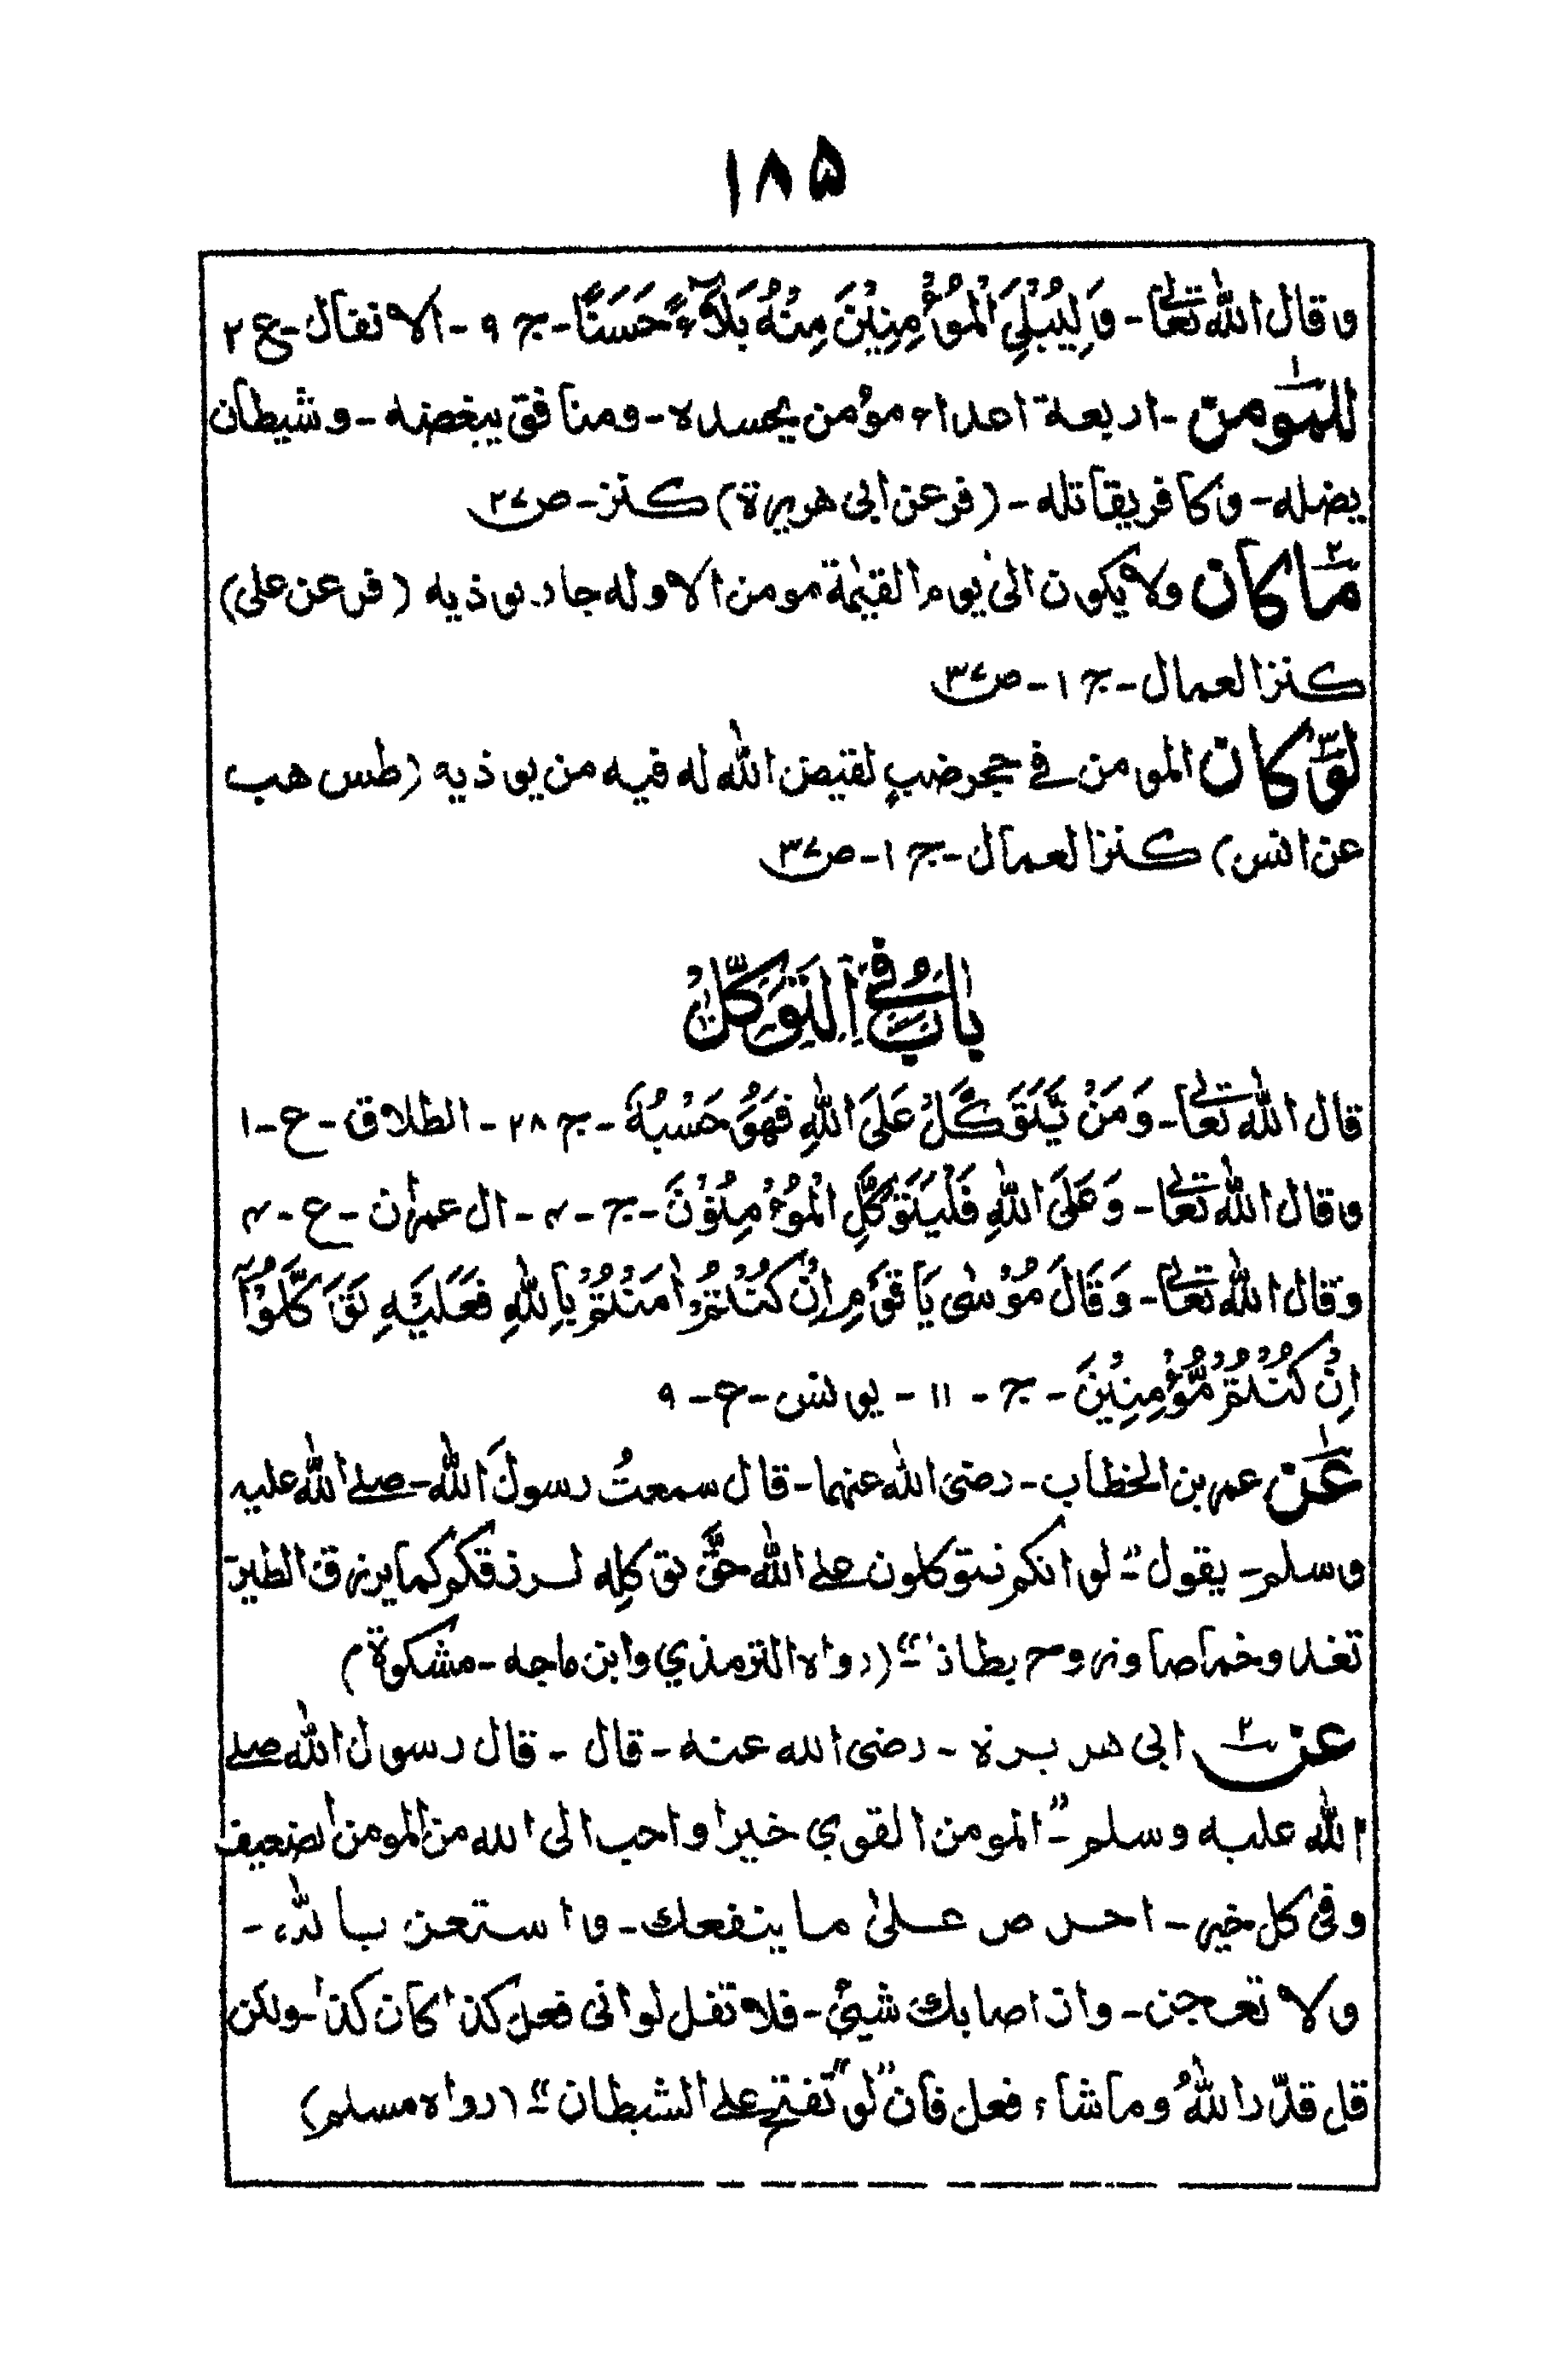 ۱۸۵
وقال الله تعالى - وَلِيُبْلِيَ الْمُؤْمِنِيْنَ مِنْهُ بَلَآءً حَسَنًا - ج ۹ - الانفال - ع ۲
للمؤمن - اربعة اعداء مؤمن يحسده - ومنافق يبغضه - وشيطان
يضله - وكافر يقاتله - (فر عن ابى هريرة) كنز - ص
ما كان ولا يكون الىٰ يوم القيٰمة مومن الا وله جار يوذيه (فر عن على)
كنز العمال - ج ۱ - ص
لو كان المومن فى جحر ضبٍ لقيض الله له فيه من يوذيه (طس هب
عن انس) كنز العمال - ج ۱ - ص
بَابُ فِى التَّوَكُّلْ
قال الله تعالى - وَمَنْ يَّتَوَكَّلْ عَلَى اللهِ فَهُوَ حَسْبُهٗ - ج ۲۸ - الطلاق - ع - ۱
وقال الله تعالى - وَعَلَى اللهِ فَلْيَتَوَكَّلِ الْمُؤْمِنُوْنَ - ج - ۴ - ال عمرٰن - ع - ۴
وقال الله تعالى - وَقَالَ مُوْسٰى يَا قَوْمِ اِنْ كُنْتُمْ اٰمَنْتُمْ بِاللهِ فَعَلَيْهِ تَوَكَّلُوْآ
اِنْ كُنْتُمْ مُّؤْمِنِيْنَ - ج - ۱۱ - يونس - ع - ۹
عن عمر بن الخطاب - رضى الله عنهما - قال سمعتُ رسولَ الله - صلے الله عليه
وسلم - يقول "لو انكم تتوكلون علے الله حقَّ توكلِه لرزقكم كما يرزق الطير
تغدو خماصا وتروح بطانا" (رواه الترمذي وابن ماجه - مشكوة)
عن ابى هريرة - رضى الله عنه - قال - قال رسول الله صلے
الله عليه وسلم "المومن القوي خير واحب الى الله من المومن الضعيف
وفى كل خير - احرص علىٰ ما ينفعك - واستعن بالله -
ولا تعجز - واذا اصابك شيئ - فلا تقل لو انى فعلت كذا كان كذا - ولكن
قل قدّر اللهُ وما شاء فعل فان "لو" تفتح عمل الشيطان" (رواه مسلم)